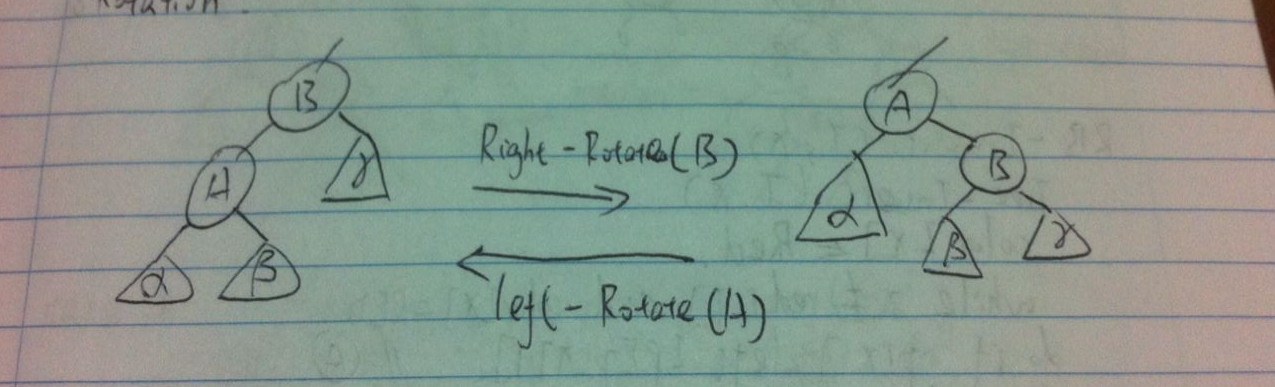 Rotation.
B
A
γ
α
β
Right-Rotate(B)
left-Rotate(A)
A
B
α
β
γ